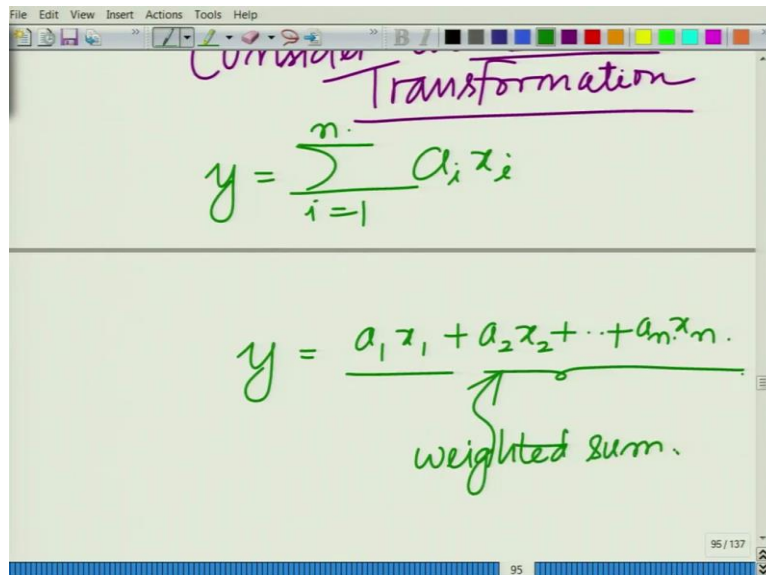 File Edit View Insert Actions Tools Help
B I
Consider
Transformation
y = \sum_{i=1}^{n} a_i x_i
y = a_1 x_1 + a_2 x_2 + .. + a_n x_n.
weighted sum.
95/137
95